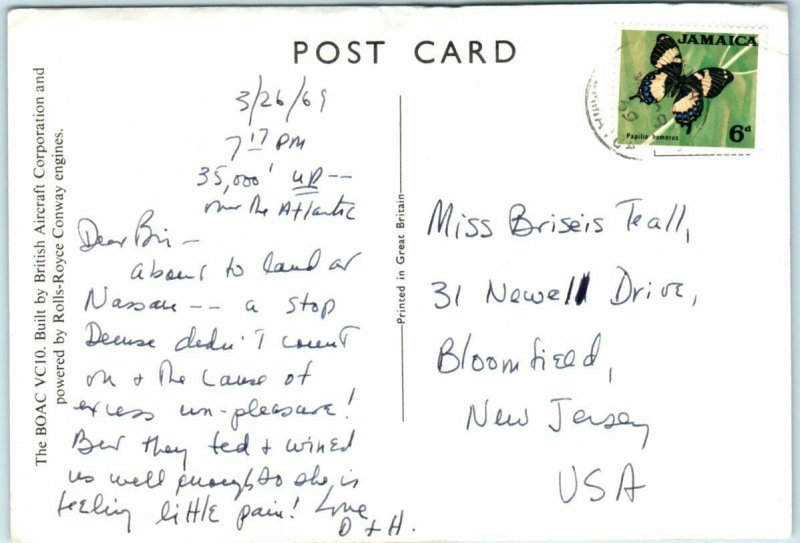 POST CARD
The BOAC VC10. Built by British Aircraft Corporation and
powered by Rolls-Royce Conway engines.
3/26/69
7 17 PM
35,000' UP --
over the Atlantic
Dear Bri -
about to land at
Nassau -- a stop
Denise didn't count
on + the cause of
excess un-pleasure!
But they fed + wined
us well enough so she is
feeling little pain! Love
D + H.
Printed in Great Britain
JAMAICA
Papilio homerus
6d
Miss Briseis Teall,
31 Newell Drive,
Bloomfield,
New Jersey
USA